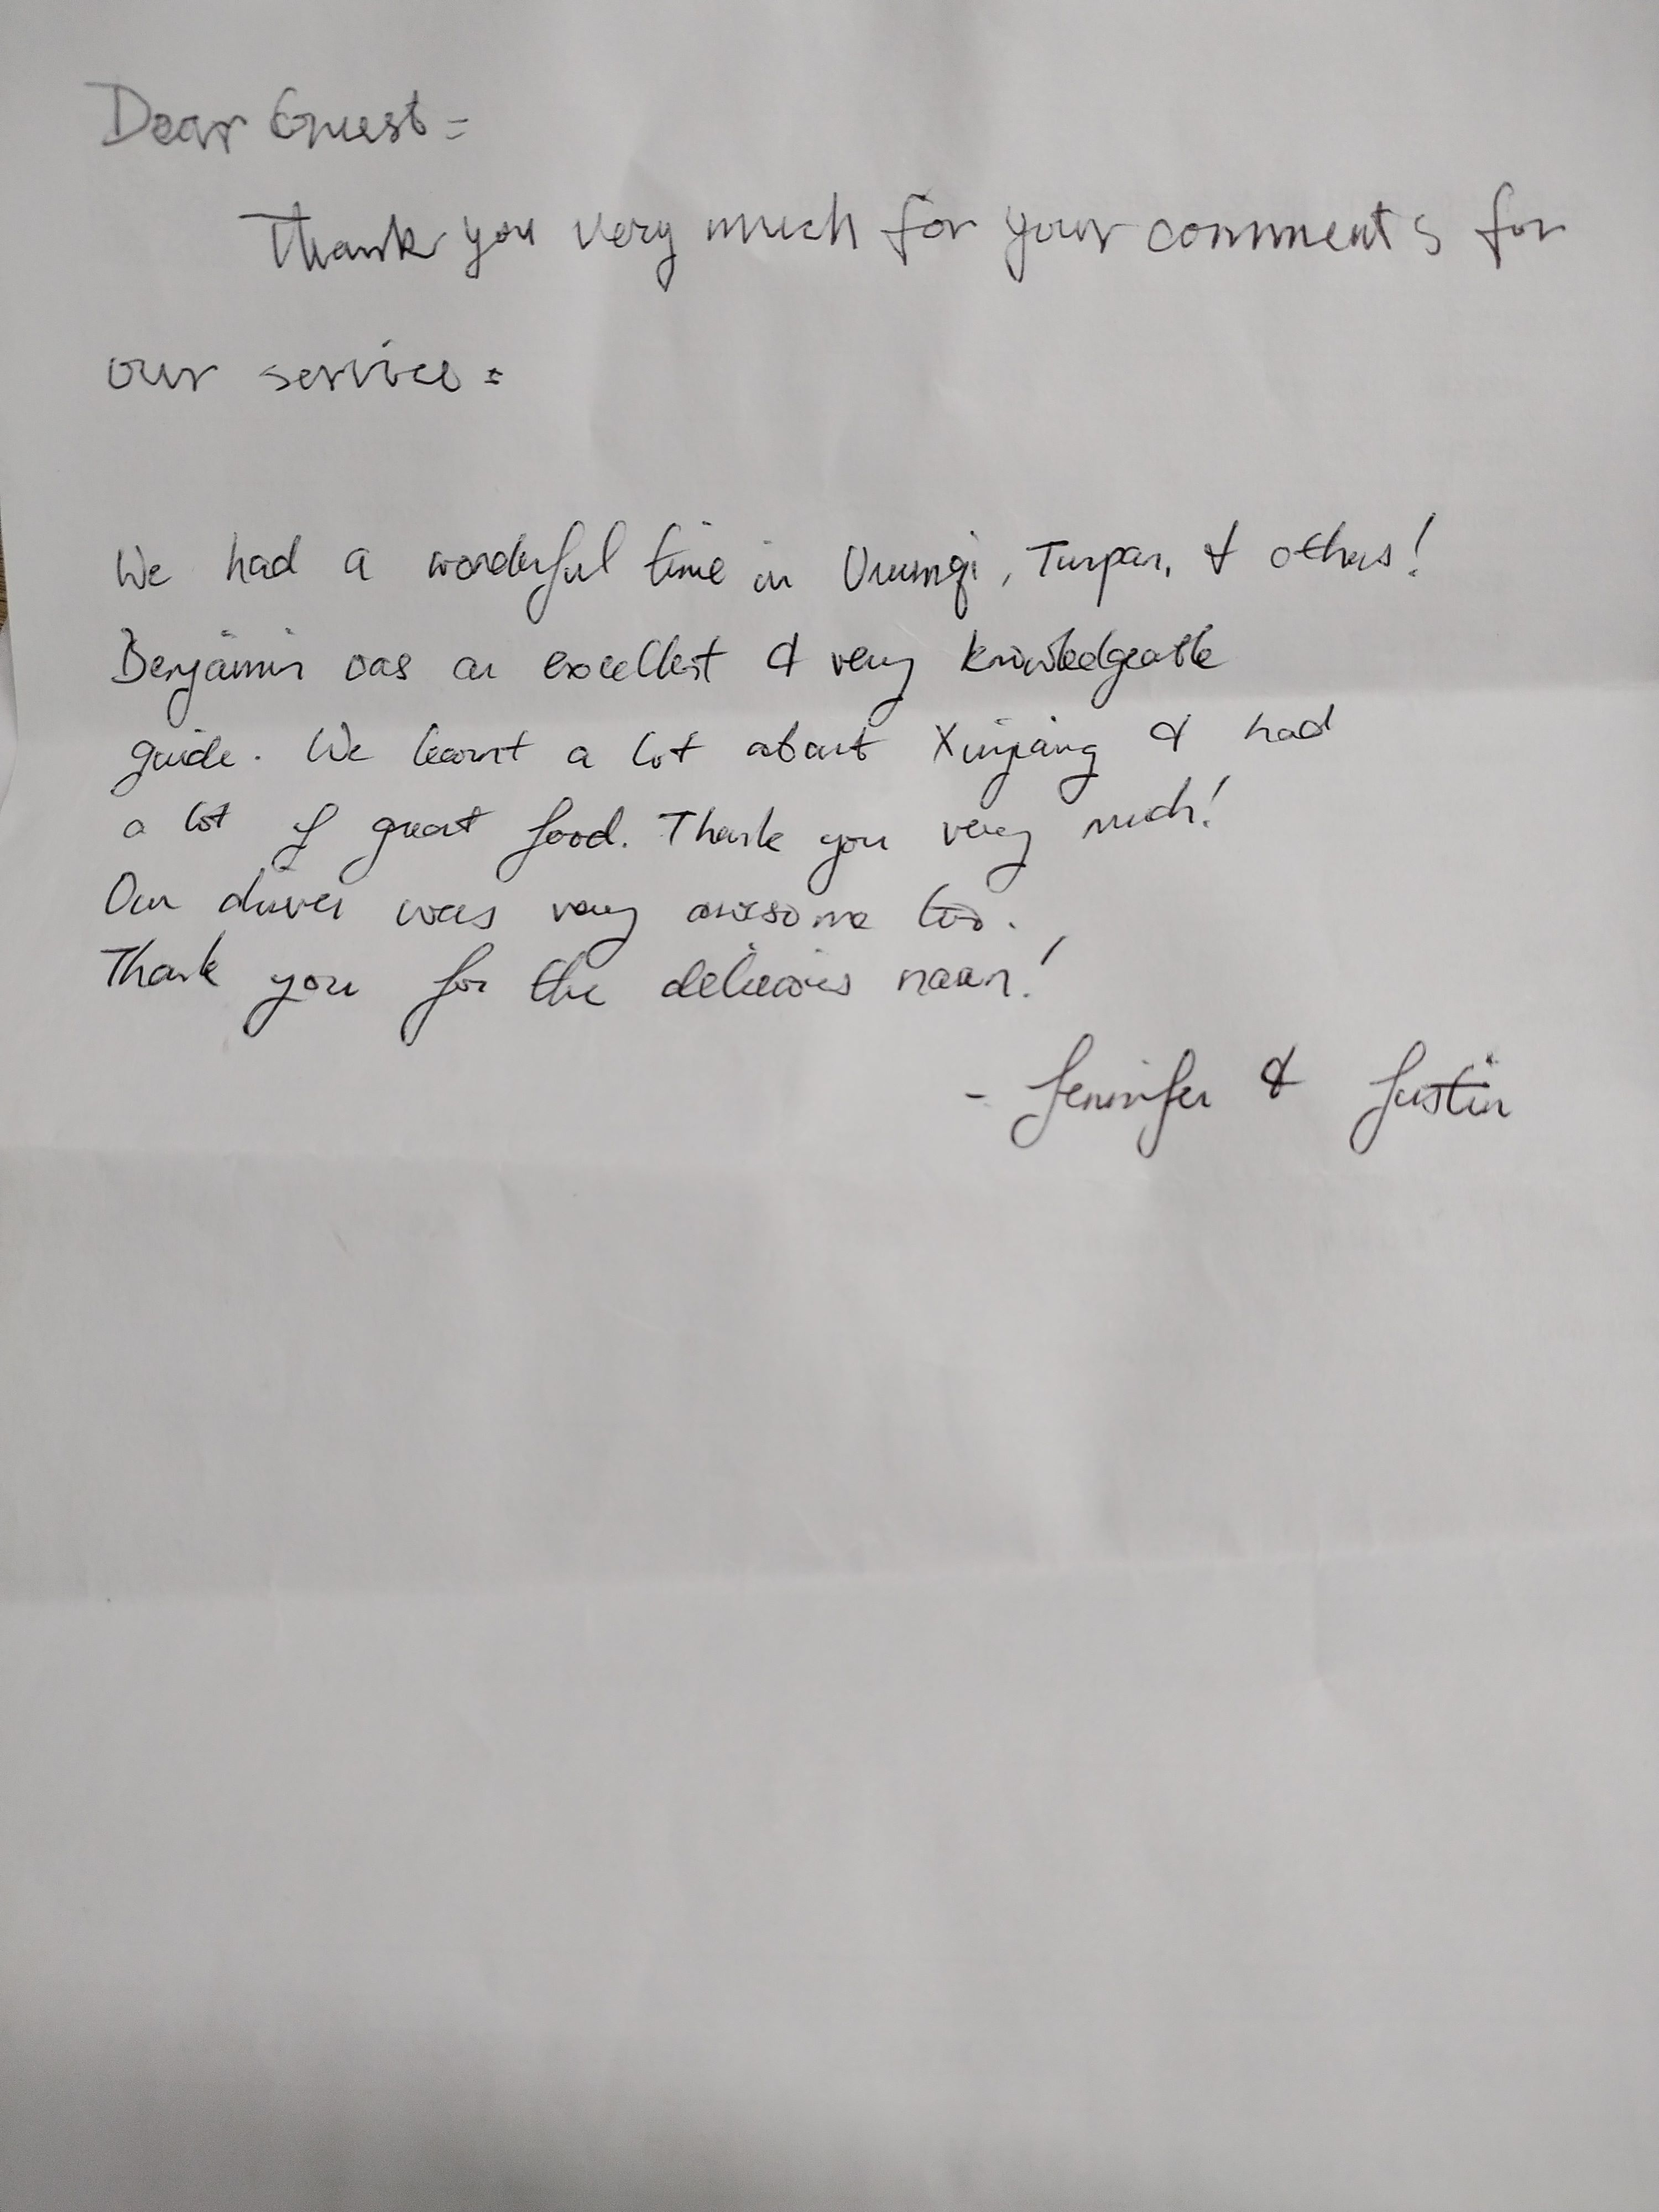 Dear Guest:
Thank you very much for your comments for
our service:
We had a wonderful time in Urumqi, Turpan, & others!
Benjamin was an excellent & very knowledgeable
guide. We learnt a lot about Xinjiang & had
a lot of great food. Thank you very much!
Our driver was very awesome too.
Thank you for the delicious naan!
- Jennifer & Justin